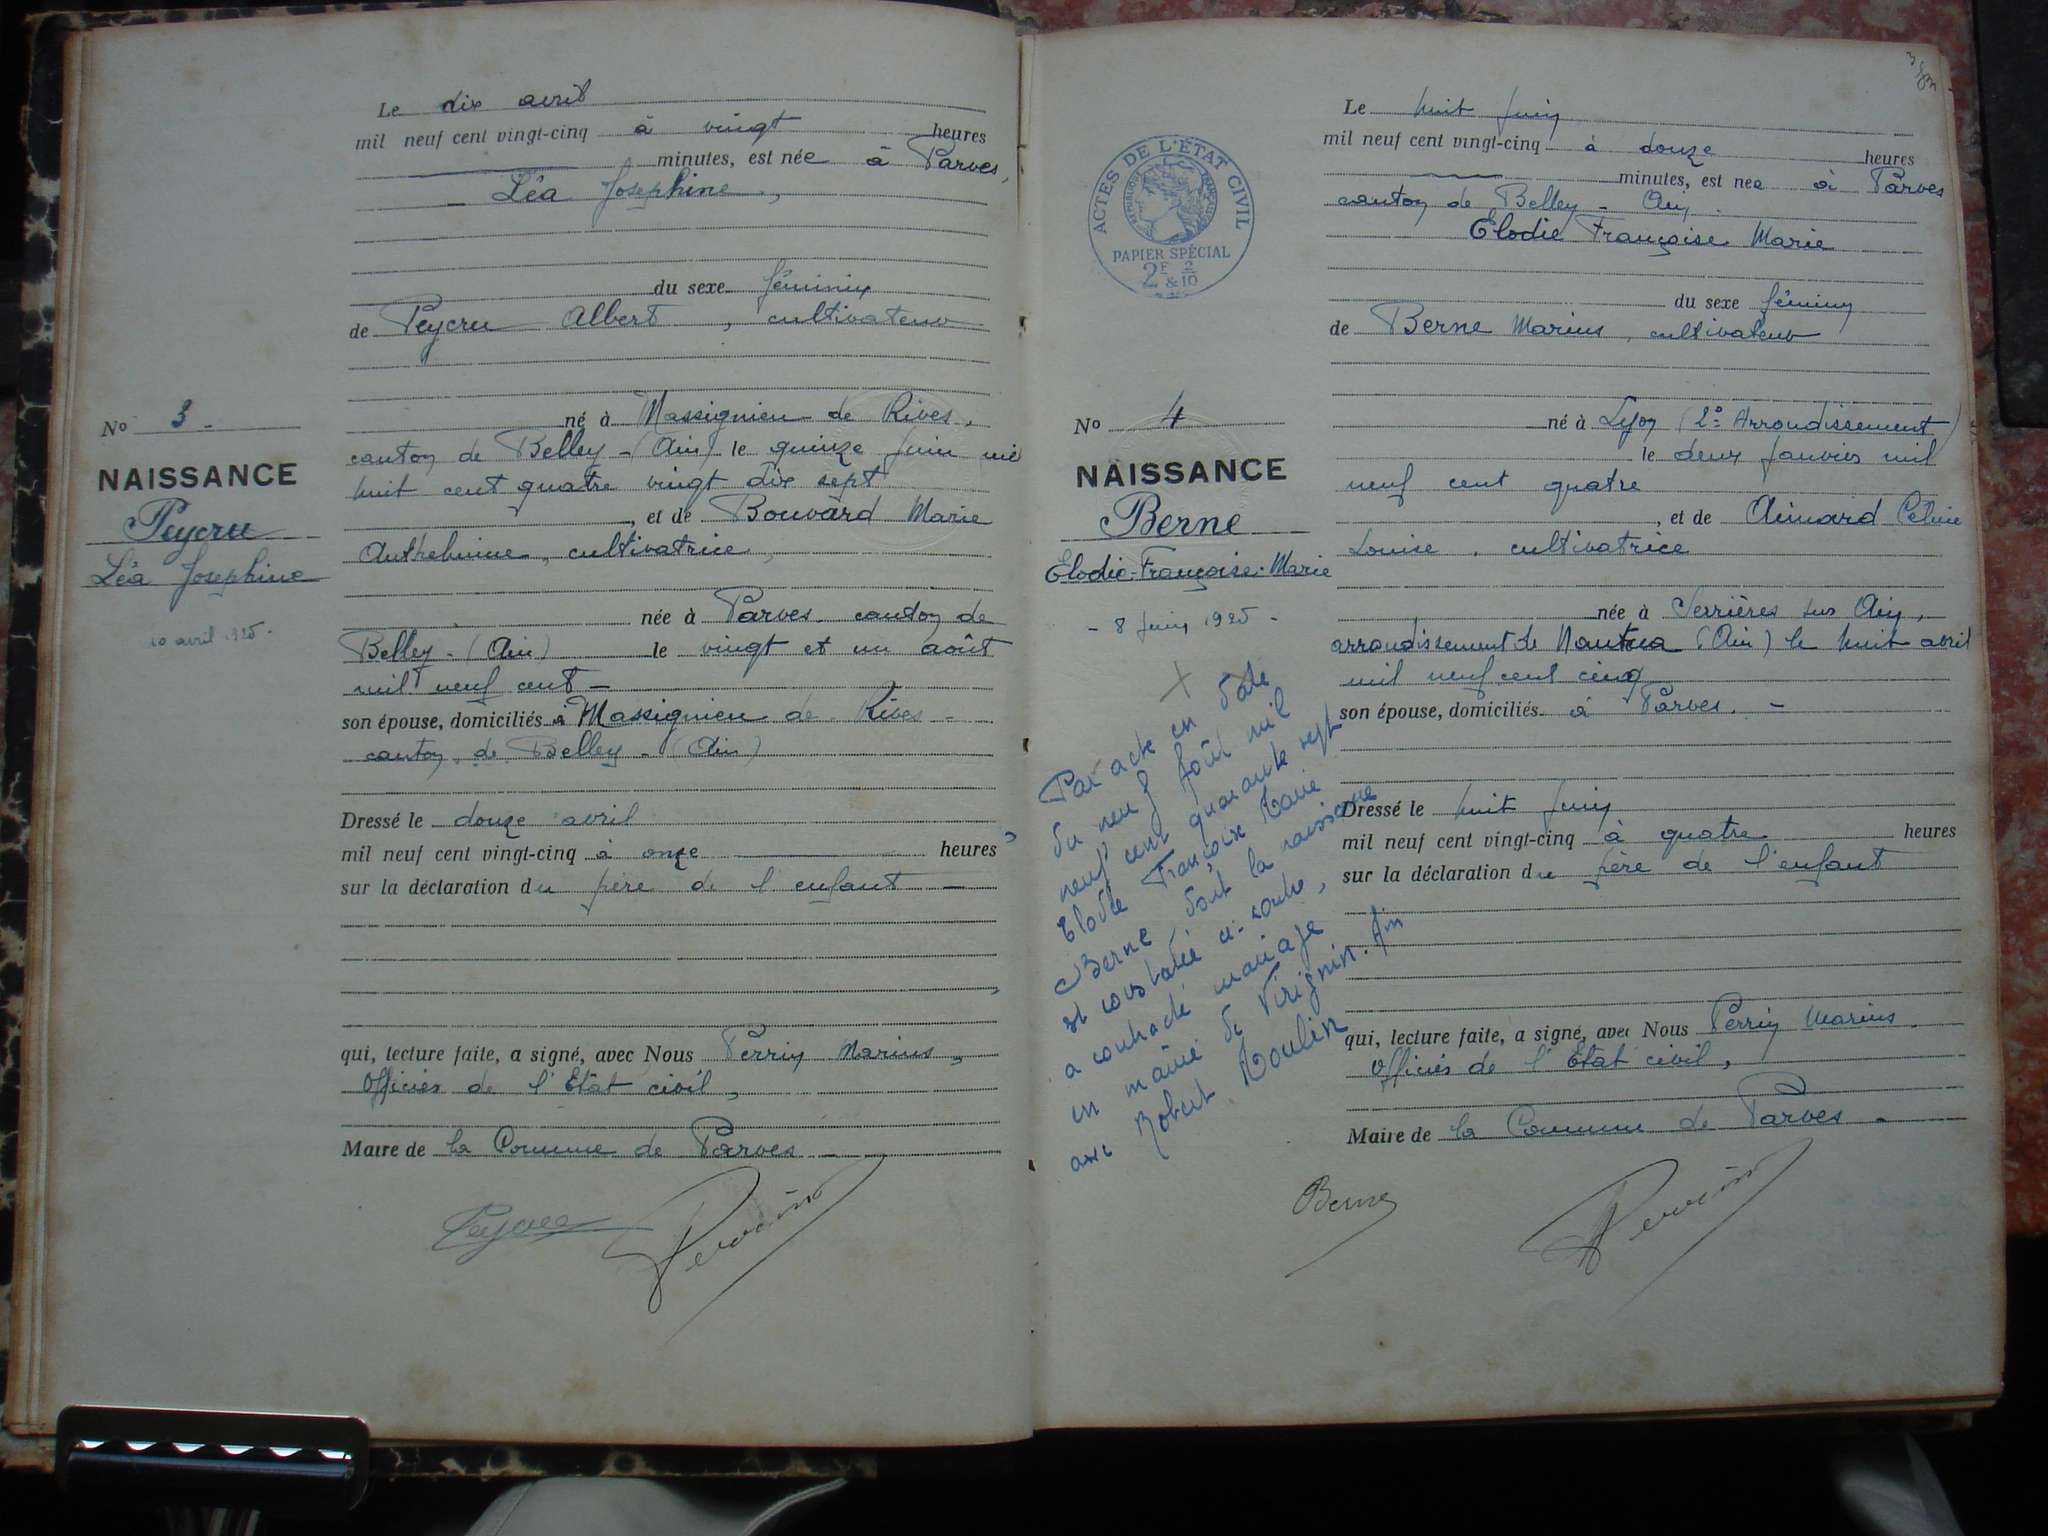 Le dix avril
mil neuf cent vingt-cinq à vingt heures
minutes, est née à Parves,
Léa Josephine,
du sexe féminin
de Peycru Albert, cultivateur
né à Massignieu de Rives,
canton de Belley - (Ain) le quinze juin mil
huit cent quatre vingt dix sept
, et de Bouvard Marie
Anthelmine, cultivatrice,
née à Parves. canton de
Belley - (Ain) le vingt et un août
mil neuf cent -
son épouse, domiciliés à Massignieu de Rives -
canton de Belley - (Ain)
Dressé le douze avril
mil neuf cent vingt-cinq à onze heures
sur la déclaration du père de l'enfant -
qui, lecture faite, a signé, avec Nous Perrin Marius,
Officier de l'Etat civil,
Maire de la Commune de Parves -
Perrin
No 3 -
NAISSANCE
Peycru
Léa Josephine
10 avril 1925 -
ACTES DE L'ÉTAT CIVIL
RÉPUBLIQUE FRANÇAISE
PAPIER SPÉCIAL
2F & 2/10
No 4
NAISSANCE
Berne
Elodie-Françoise-Marie
- 8 juin 1925 -
Par acte en date
du neuf Août mil
neuf cent quarante sept
Elodie Françoise Marie
Berne, dont la naissance
est constatée ci-contre,
a contracté mariage
en mairie de Virignin. Ain
avec Robert Moulin
Le huit juin
mil neuf cent vingt-cinq à douze heures
minutes, est née à Parves
canton de Belley - Ain.
Elodie Françoise Marie
du sexe féminin
de Berne Marius, cultivateur
né à Lyon (2e Arrondissement)
le deux janvier mil
neuf cent quatre
, et de Aimard Céline
Louise, cultivatrice
née à Serrières sur Ain,
arrondissement de Nantua (Ain) le huit avril
mil neuf cent cinq
son épouse, domiciliés à Parves. -
Dressé le huit juin
mil neuf cent vingt-cinq à quatre heures
sur la déclaration du père de l'enfant
qui, lecture faite, a signé, avec Nous Perrin Marius.
Officier de l'Etat civil,
Maire de la Commune de Parves -
Berne
Perrin